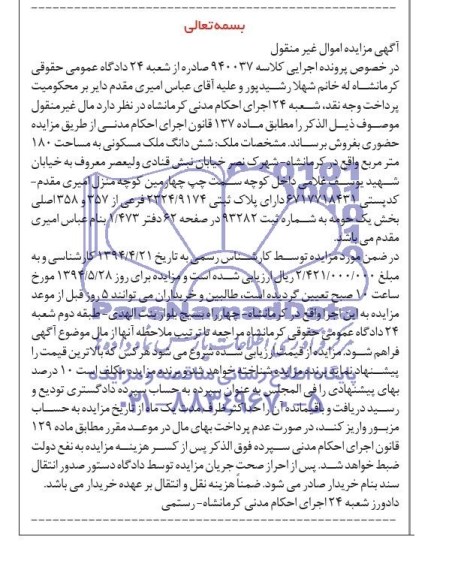 بسمه‌تعالی
آگهی مزایده اموال غیر منقول
در خصوص پرونده اجرایی کلاسه ۹۴۰۰۳۷ صادره از شعبه ۲۴ دادگاه عمومی حقوقی
کرمانشاه له خانم شهلا رشیدپور و علیه آقای عباس امیری مقدم دایر بر محکومیت
پرداخت وجه نقد، شعبه ۲۴ اجرای احکام مدنی کرمانشاه در نظر دارد مال غیر منقول
موصوف ذیل الذکر را مطابق ماده ۱۳۷ قانون اجرای احکام مدنی از طریق مزایده
حضوری بفروش برساند. مشخصات ملک: شش دانگ ملک مسکونی به مساحت ۱۸۰
متر مربع واقع در کرمانشاه-شهرک نصر خیابان نبش قنادی ولیعصر معروف به خیابان
شهید یوسف غلامی داخل کوچه سمت چپ چهارمین کوچه منزل امیری مقدم-
کدپستی ۶۷۱۷۷۱۸۴۳۱ دارای پلاک ثبتی ۲۳۲۴/۹۱۷۴ فرعی از ۳۵۷ و ۳۵۸ اصلی
بخش یک حومه به شماره ثبت ۹۳۲۸۲ در صفحه ۶۲ دفتر ۱/۴۷۳ بنام عباس امیری
مقدم می باشد.
در ضمن مورد مزایده توسط کارشناس رسمی به تاریخ ۱۳۹۴/۴/۲۱ کارشناسی و به
مبلغ ۲/۴۲۱/۰۰۰/۰۰۰ ریال ارزیابی شده است و مزایده برای روز ۱۳۹۴/۵/۲۸ مورخ
ساعت ۱۰ صبح تعیین گردیده است، طالبین و خریداران می توانند ۵ روز قبل از موعد
مزایده به این اجرا واقع در کرمانشاه-چهارراه بسیج بلوار بنت الهدی-طبقه دوم شعبه
۲۴ دادگاه عمومی حقوقی کرمانشاه مراجعه تا ترتیب ملاحظه آنها از مال موضوع آگهی
فراهم شود. مزایده از قیمت ارزیابی شده شروع می شود هر کس که بالاترین قیمت را
پیشنهاد نماید برنده مزایده شناخته خواهد شد و برنده مزایده مکلف است ۱۰ درصد
بهای پیشنهادی را فی المجلس به عنوان سپرده به حساب سپرده دادگستری تودیع و
رسید دریافت و باقیمانده آن را حداکثر ظرف مدت یک ماه از تاریخ مزایده به حساب
مزبور واریز کند، در صورت عدم پرداخت بهای مال در موعد مقرر مطابق ماده ۱۲۹
قانون اجرای احکام مدنی سپرده فوق الذکر پس از کسر هزینه مزایده به نفع دولت
ضبط خواهد شد. پس از احراز صحت جریان مزایده توسط دادگاه دستور صدور انتقال
سند بنام خریدار صادر می شود. ضمناً هزینه نقل و انتقال بر عهده خریدار می باشد.
دادورز شعبه ۲۴ اجرای احکام مدنی کرمانشاه-رستمی